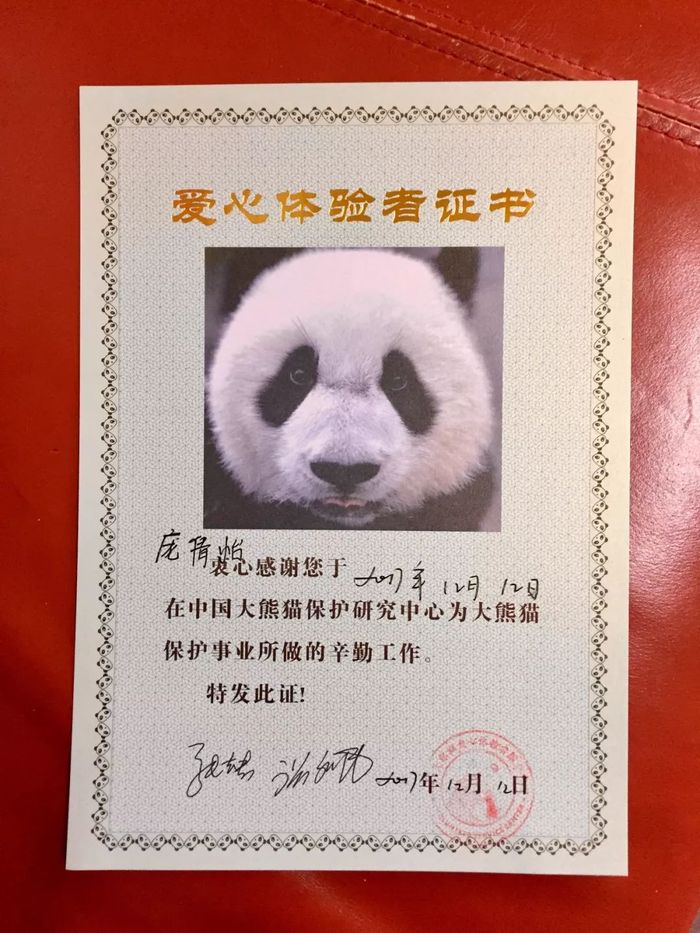 爱心体验者证书
衷心感谢您于 2017年 12月 12日
在中国大熊猫保护研究中心为大熊猫
保护事业所做的辛勤工作。
特发此证!
2017年 12月 12日